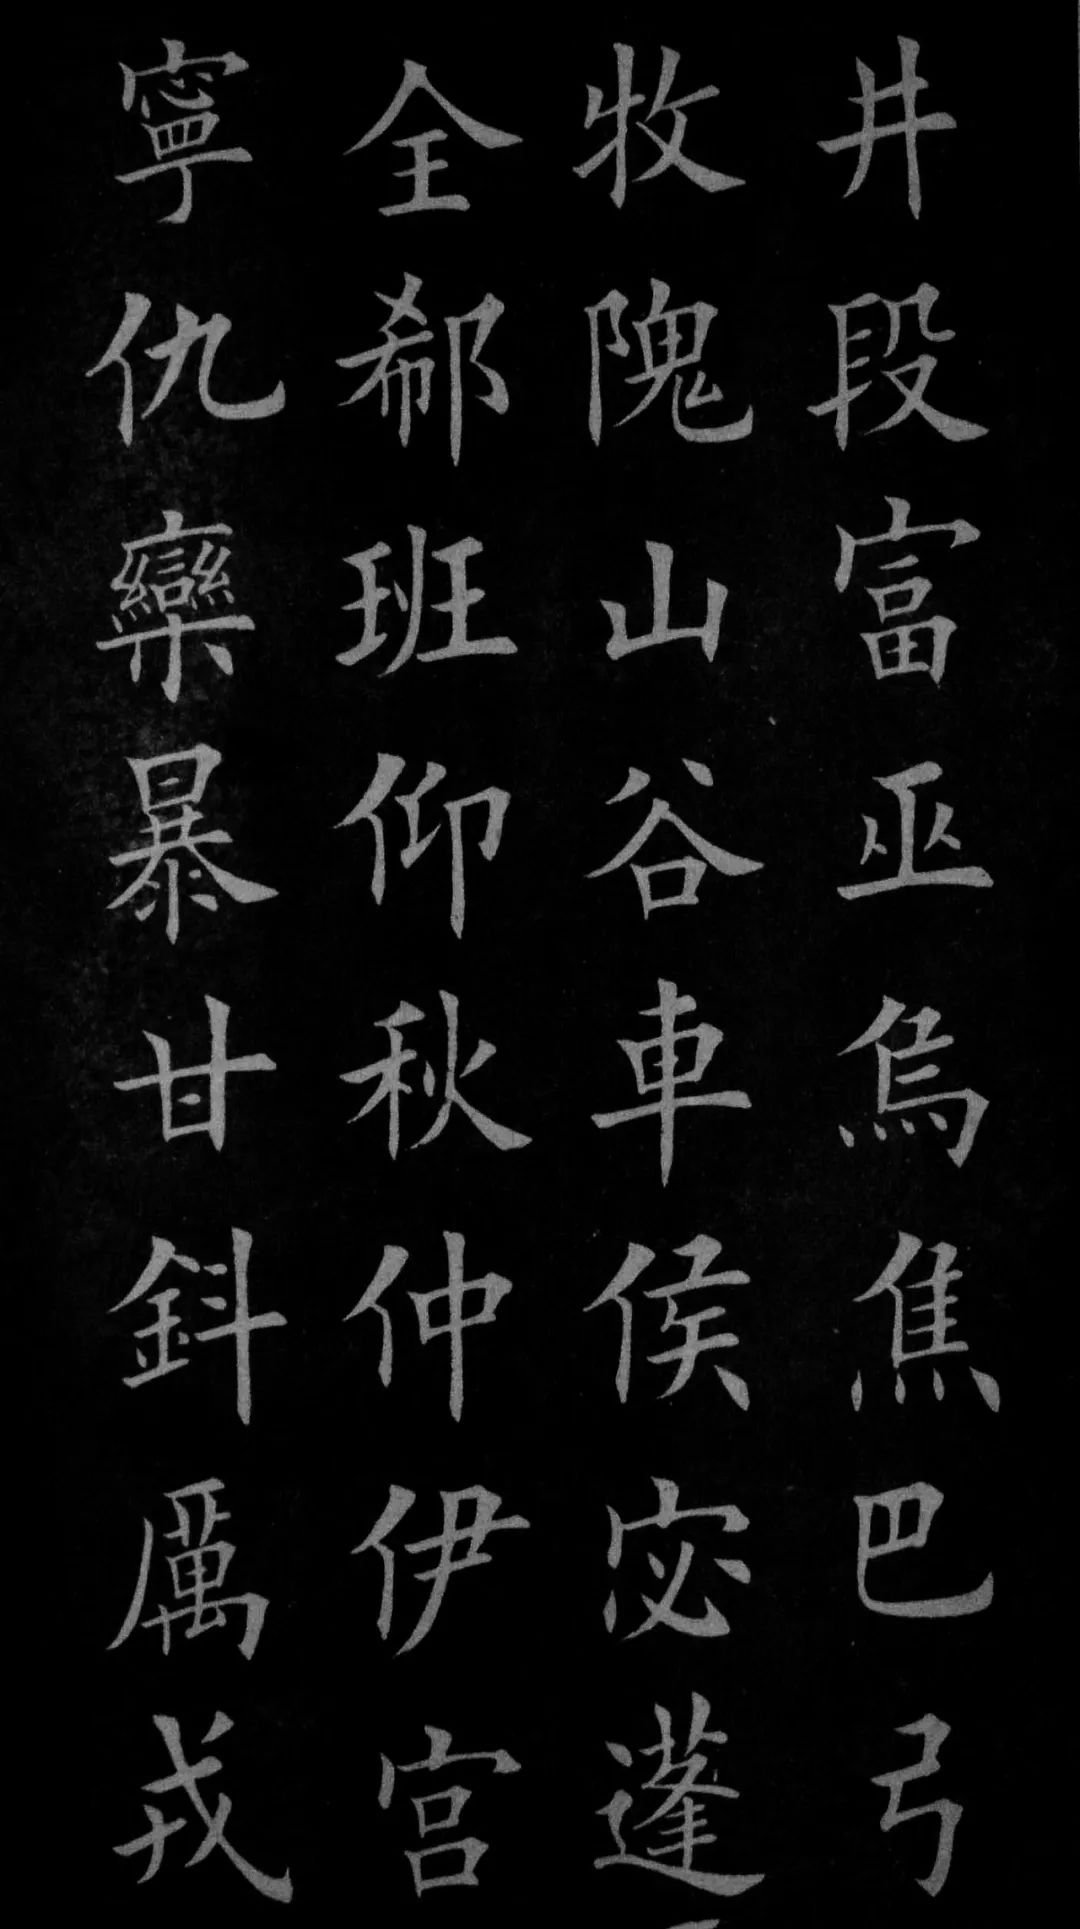 井段富巫烏焦巴弓
牧隗山谷車侯宓蓬
全郗班仰秋仲伊宮
寧仇欒暴甘鈄厲戎